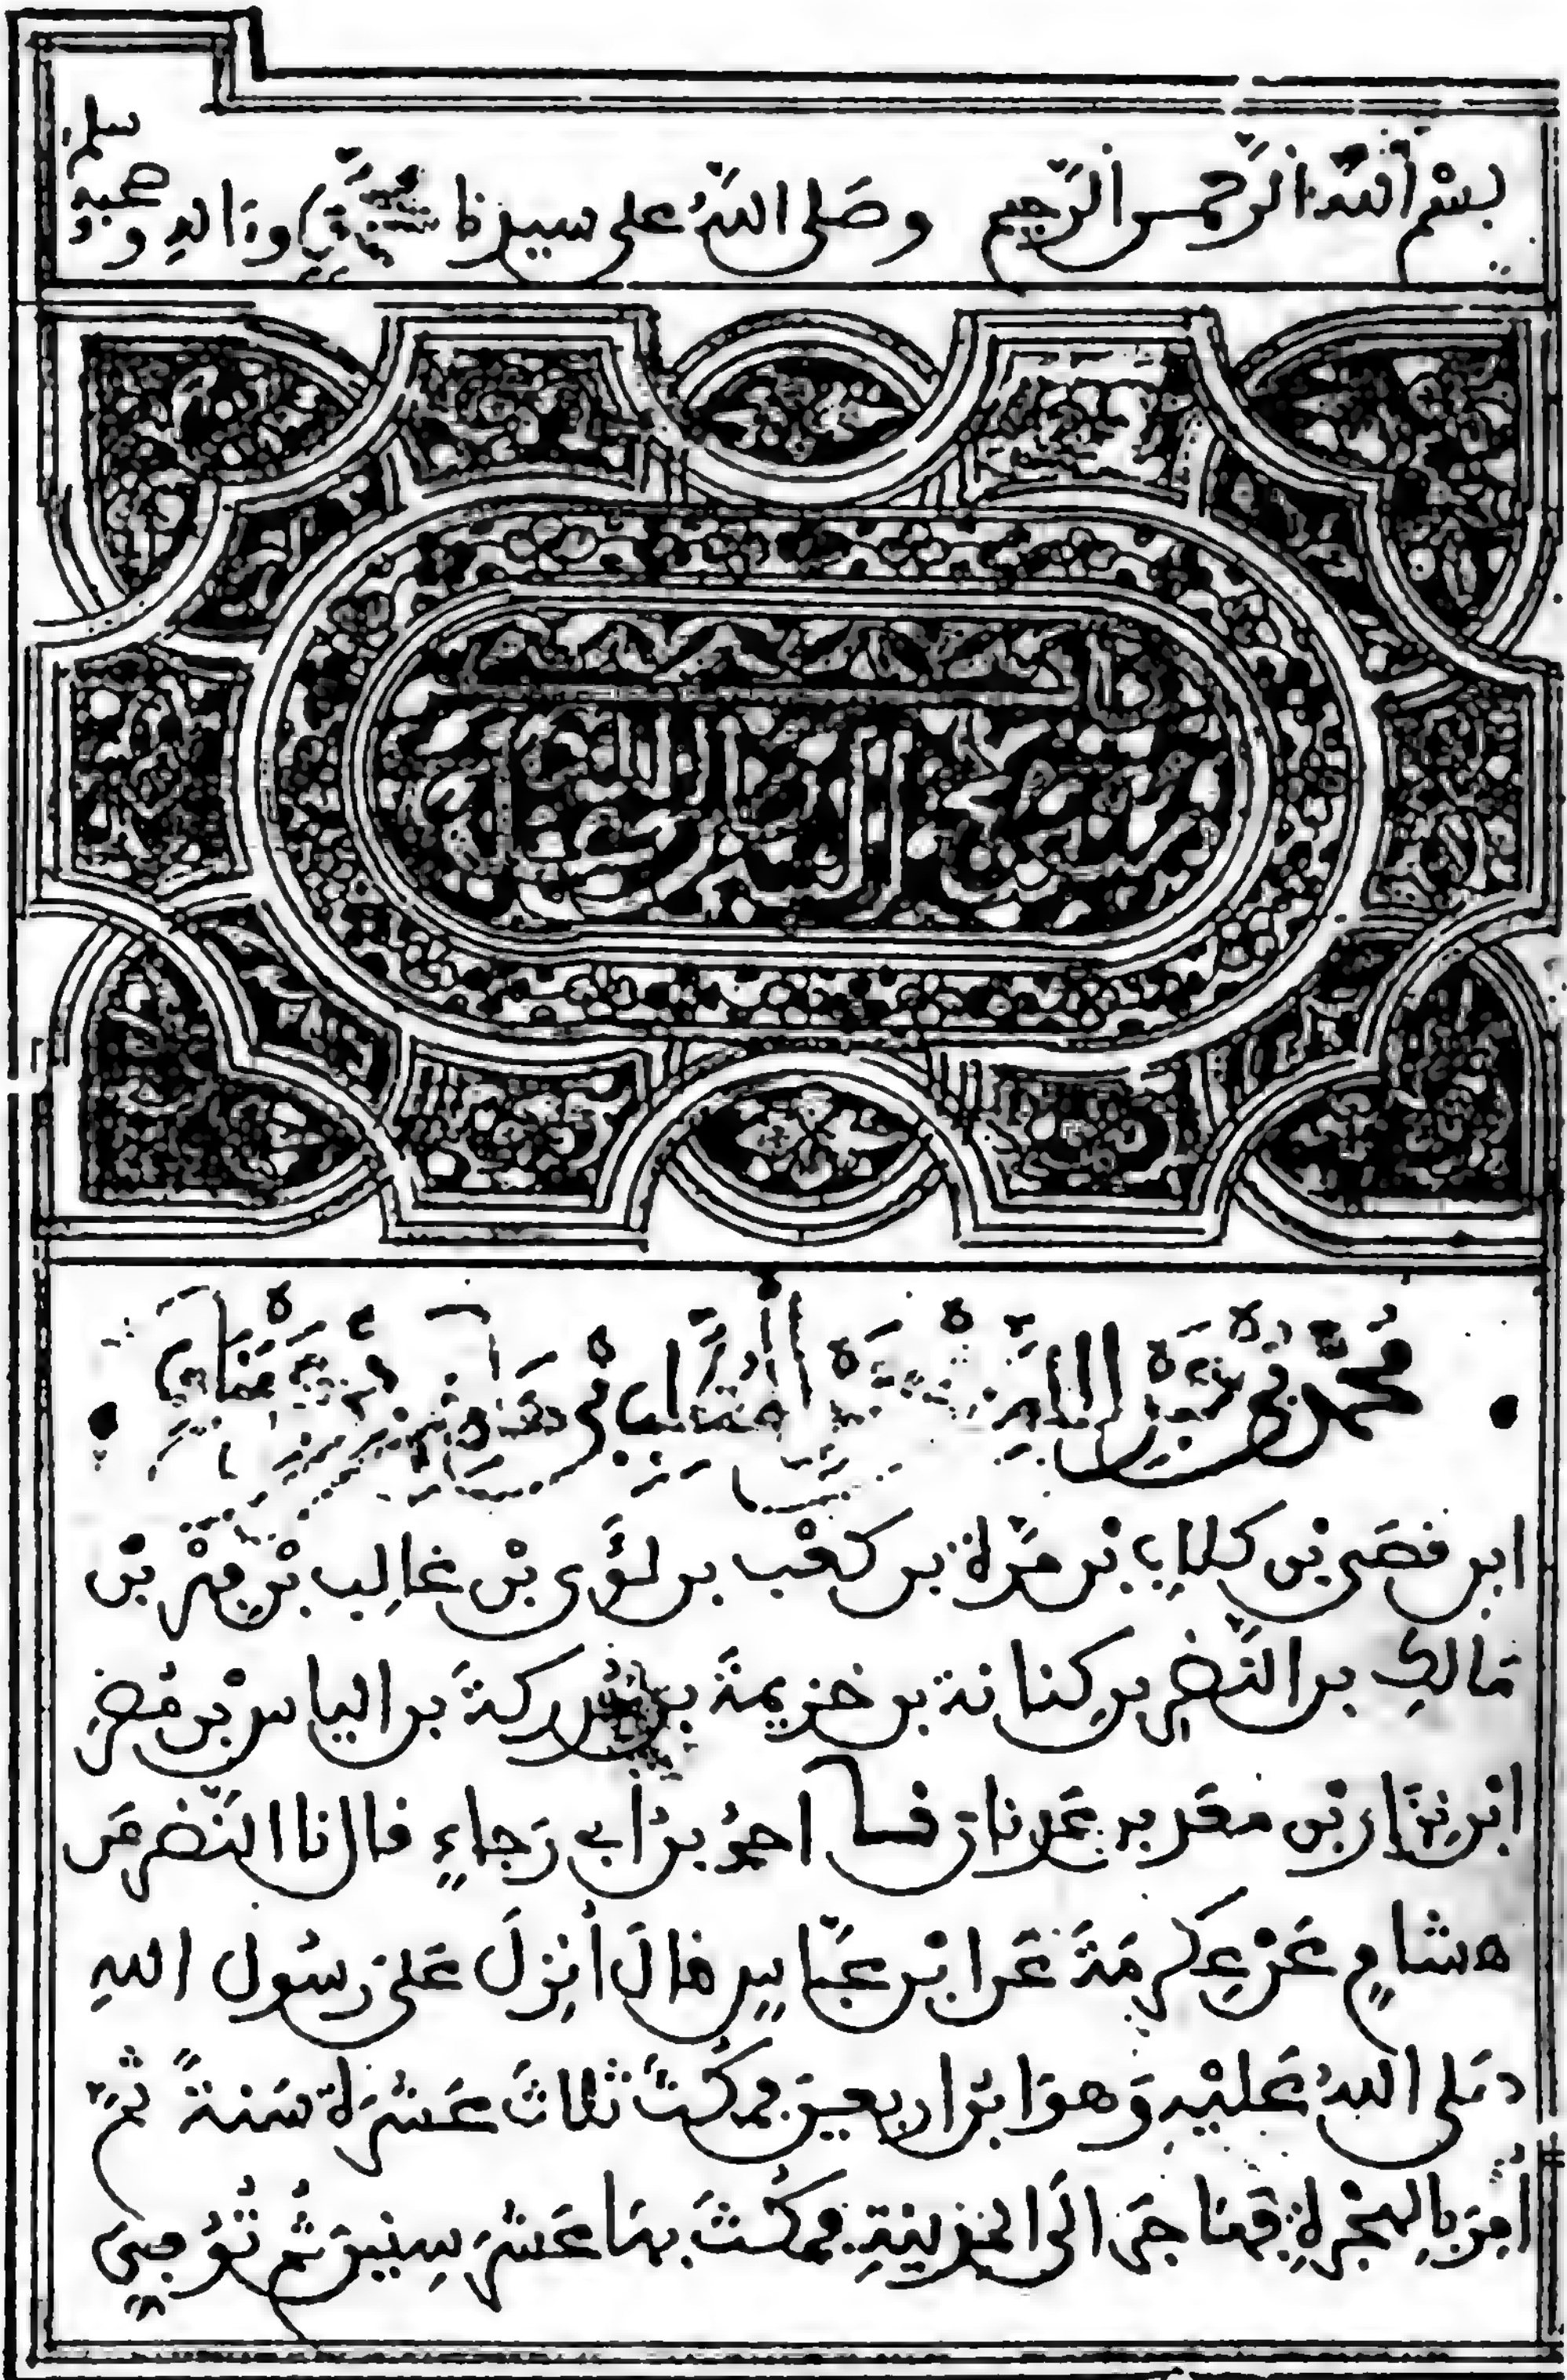 بسم الله الرحمن الرحيم وصلى الله على سيدنا محمد وءاله وصحبه وسلم
باب مبعث النبي صلى
محمد بن عبد الله بن عبد المطلب بن هاشم بن عبد مناف
ابن قصي بن كلاب بن مرة بن كعب بن لؤي بن غالب بن فهر بن
مالك بن النضر بن كنانة بن خزيمة بن مدركة بن الياس بن مضر
ابن نزار بن معد بن عدنان نا احمد بن أبي رجاء قال نا النضر عن
هشام عن عكرمة عن ابن عباس قال أنزل على رسول الله
صلى الله عليه وهو ابن اربعين فمكث ثلاث عشرة سنة ثم
أمر بالهجرة فهاجر الى المدينة فمكث بها عشر سنين ثم توفي